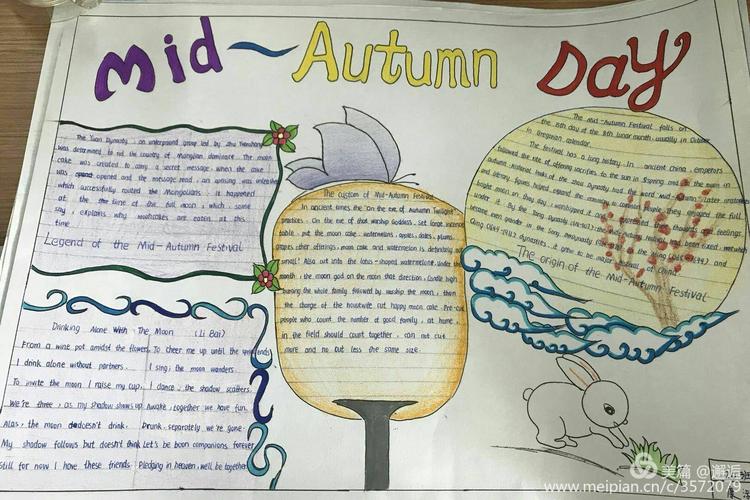 Mid-Autumn Day
The Yuan Dynasty, an underground group led by Zhu Yuanzhang
was determined to rid the country of Mongolian dominance. The moon
cake was created to carry a secret message. when the cake
was opened and the message read, an uprising was unleashed
which successfully routed the Mongolians. it happened
at the time of the full moon, which some
say, explains why mooncakes are eaten at this
time
Legend of the Mid-Autumn Festival
Drinking Alone With The Moon (Li Bai)
From a wine pot amidst the flowers, To cheer me up until the
I drink alone without partners. I sing; the moon wanders.
To invite the moon I raise my cup, I dance, the shadow scatters.
We're three, as my shadow shows up. Awake, together we have fun.
Alas, the moon doesn't drink. Drunk, separately we're gone.
My shadow follows but doesn't think Let's be boon companions forever
Still for now I have these friends, Pledging in heaven, we'll be together
The custom of Mid-Autumn Festival
In ancient times the "on the eve of, Autumn Twilight"
practices. On the eve of that worship Goddess. Set large incense
table, put the moon cake, watermelons, apples, dates, plums,
grapes other offerings, moon cake and watermelon is definitely not
small! Also cut into the lotus-shaped watermelon. Under the
month, the moon god on the moon that direction, Candle high
burning the whole family followed by worship the moon, then
the charge of the housewife cut happy moon cake. Pre-cut
people who count the number of good family, at home,
in the field should count together, can not cut
more and no cut less the same size.
The Mid-Autumn Festival falls on
the 15th day of the 8th lunar month, usually in October
in Gregorian calendar.
The festival has a long history. In ancient China, emperors
followed the rite of offering sacrifices to the sun in spring and to the moon in
autumn. Historical books of the Zhou Dynasty had the word "Mid-Autumn". Later aristocrats
and literary figures helped expand the ceremony to common people. They enjoyed the full,
bright moon on that day, worshipped it and expressed their thoughts and feelings
under it. By the Tang Dynasty (618-907), the Mid-Autumn Festival had been fixed, which
became even grander in the Song Dynasty
Qing (1644-1911) dynasties, it grew to be a major festival of China.
The origin of the Mid-Autumn Festival
美篇 @邂逅
www.meipian.cn/c/3572079